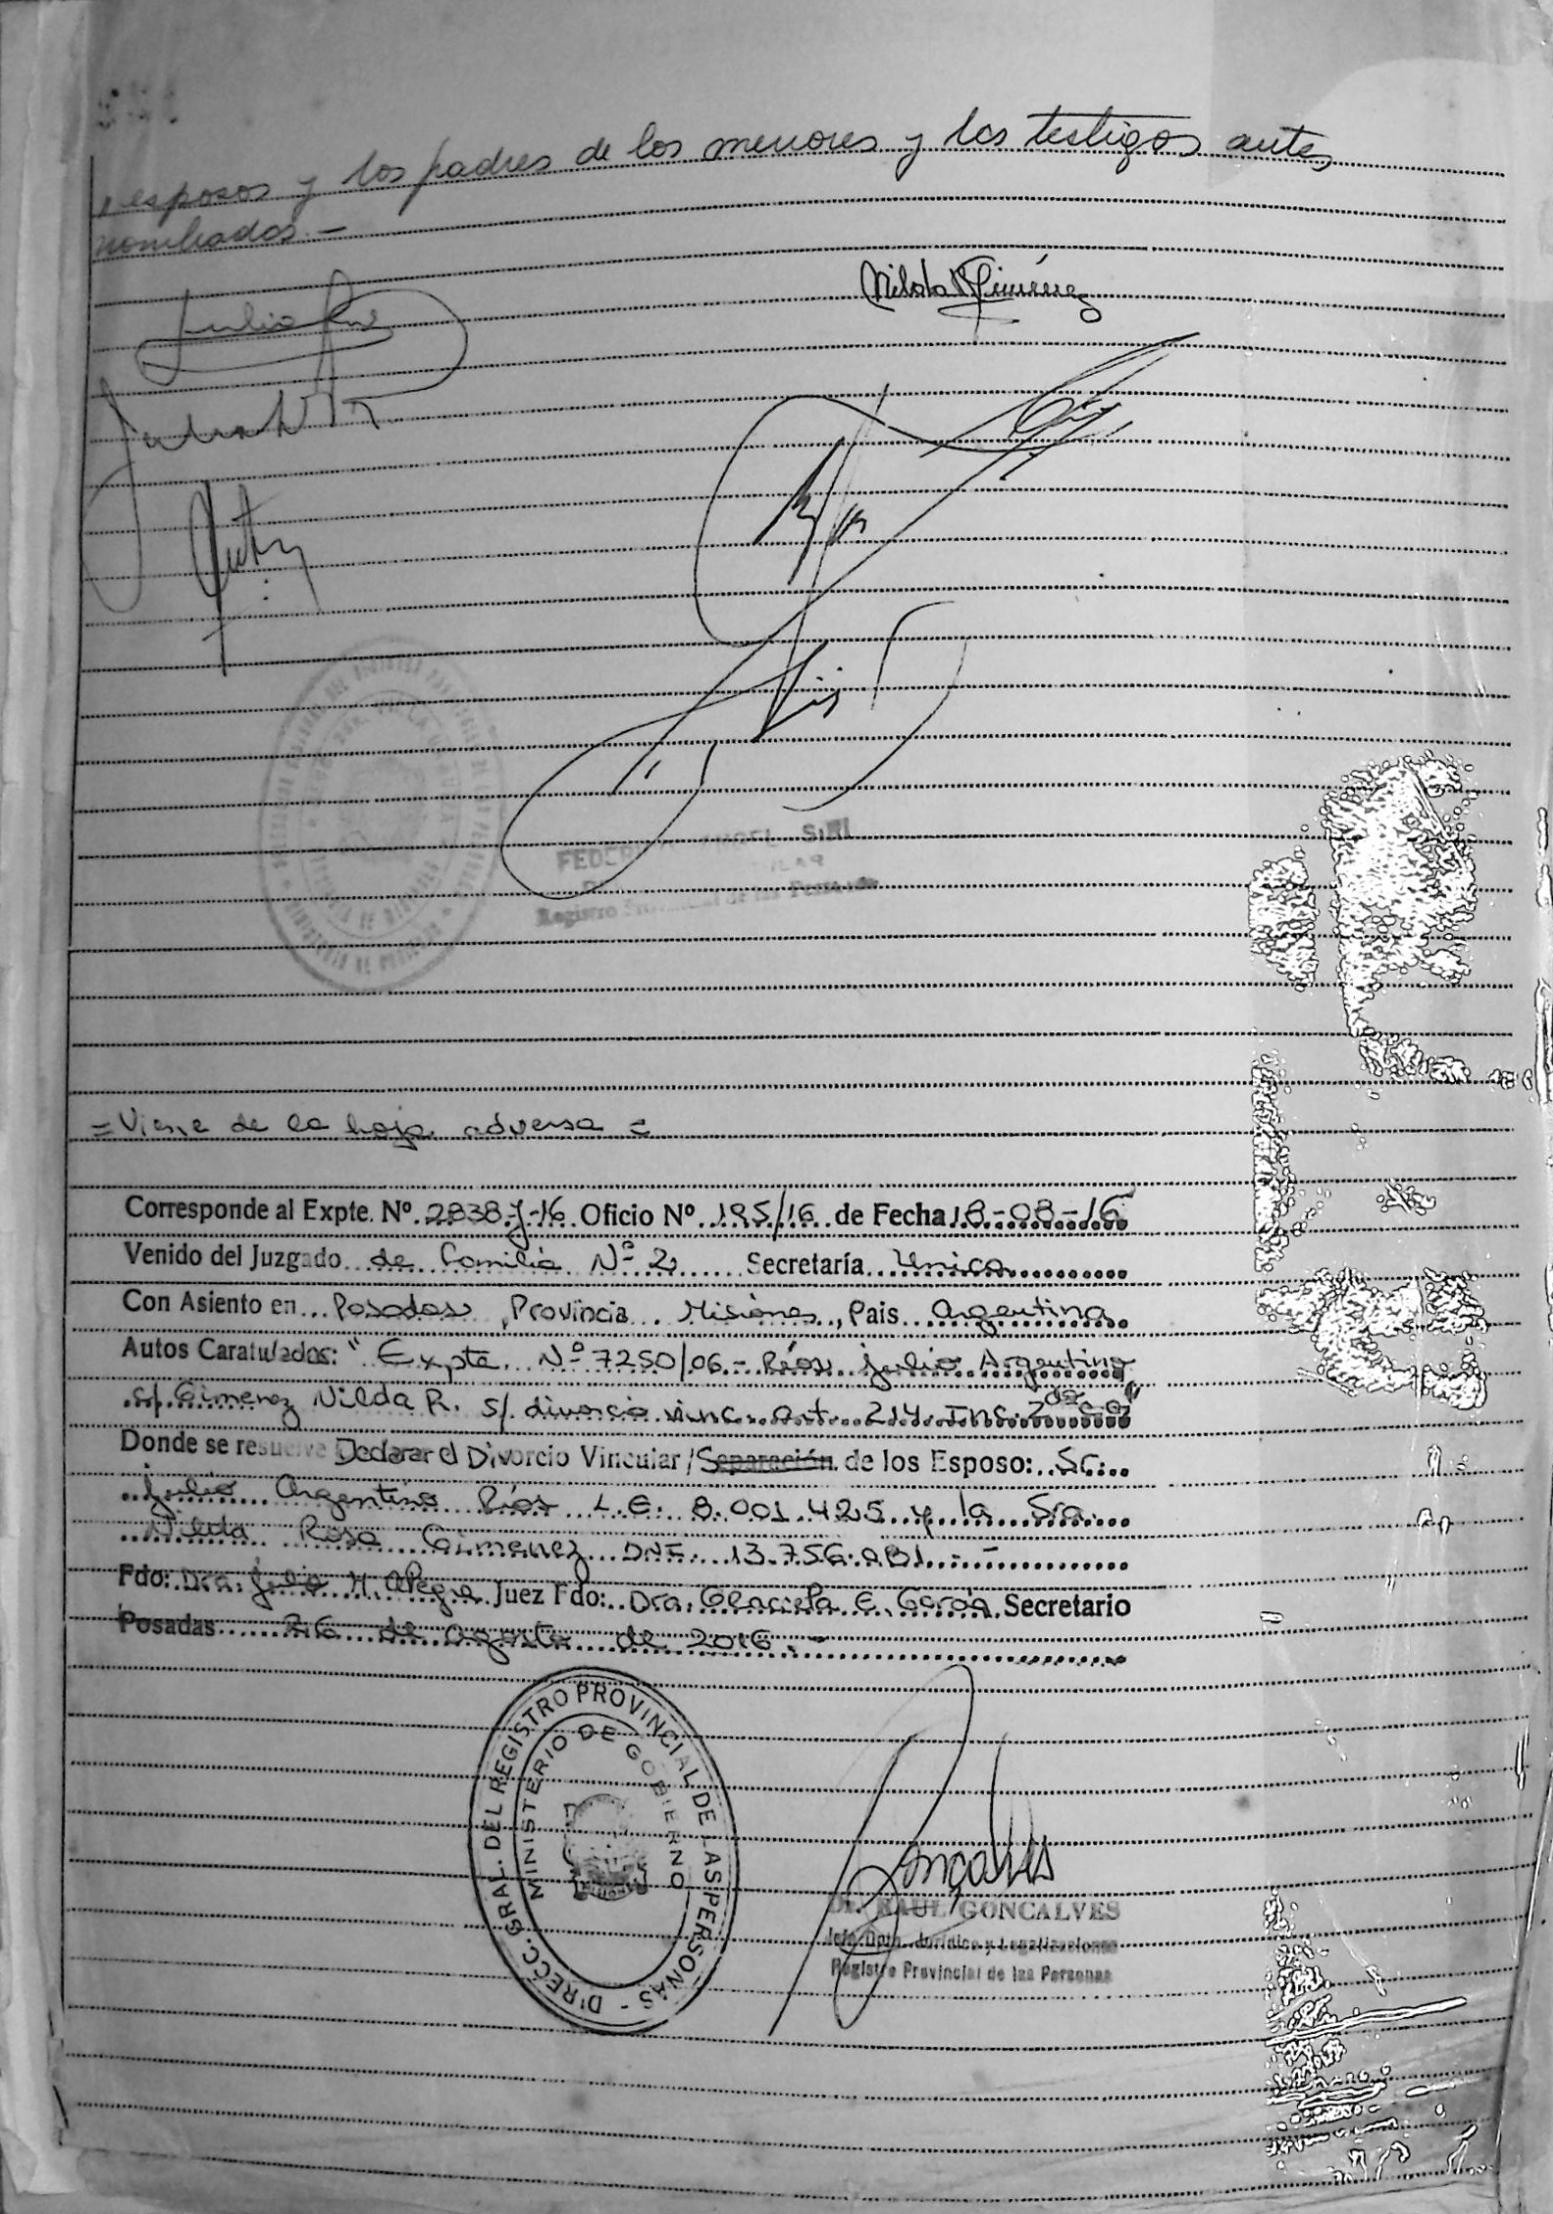 esposos y los padres de los menores y los testigos antes
nombrados.-
Nilda R Giménez
FEDERICO ANGEL SIRI
Registro Provincial de las Personas
= Viene de la hoja adversa =
Corresponde al Expte. Nº 2838-J-16 Oficio Nº 195/16 de Fecha 18-08-16
Venido del Juzgado de Familia Nº 2 Secretaría Unica
Con Asiento en Posadas, Provincia Misiones, Pais Argentina
Autos Caratulados: "Expte. Nº 7250/06 - Ríos Julio Argentino
s/ Gimenez Nilda R. s/ divorcio vinc. art. 214 Inc. 2do C.C."
Donde se resuelve Declarar el Divorcio Vincular / Separación de los Esposo: Sr.
Julio Argentino Ríos L.E. 8.001.425 y la Sra.
Nilda Rosa Gimenez DNI. 13.756.081.-
Fdo: Dra. Julia H. Alegre Juez Fdo: Dra. Graciela E. García Secretario
Posadas 26 de agosto de 2016.-
DIRECC. GRAL. DEL REGISTRO PROVINCIAL DE LAS PERSONAS -
MINISTERIO DE GOBIERNO
MISIONES
Gonçalves
Dr. RAUL GONCALVES
Jefe Dpto. Jurídico y Legalizaciones
Registro Provincial de las Personas